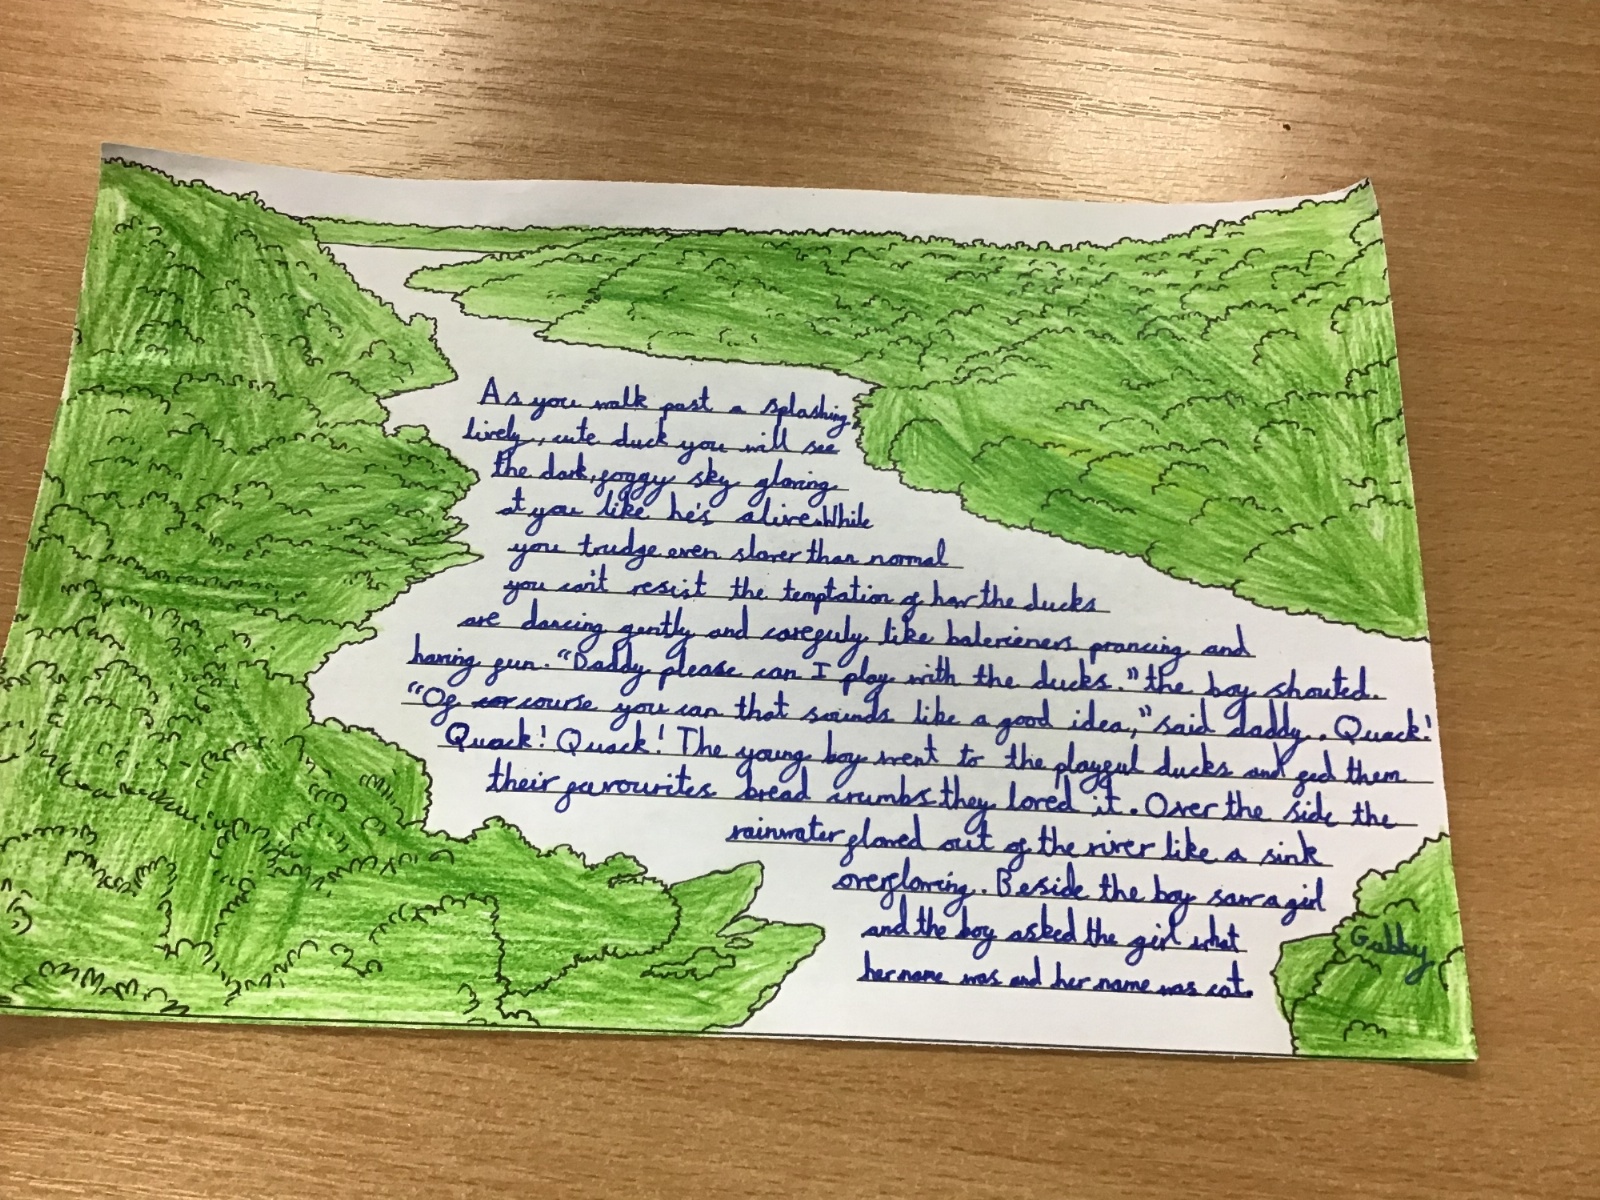 As you walk past a splashing,
lively, cute duck you will see
the dark, foggy sky glaring
at you like he's alive. While
you trudge even slower than normal
you can't resist the temptation of how the ducks
are dancing gently and carefuly like balerieners prancing and
having fun. "Daddy please can I play with the ducks." the boy shouted.
"Of cor course you can that sounds like a good idea," said daddy. Quack!
Quack! Quack! The young boy went to the playful ducks and fed them
their favourites bread crumbs they loved it. Over the side the
rainwater flowed out of the river like a sink
overflowing. Beside the boy saw a girl
and the boy asked the girl what
her name was and her name was cat.
Gabby